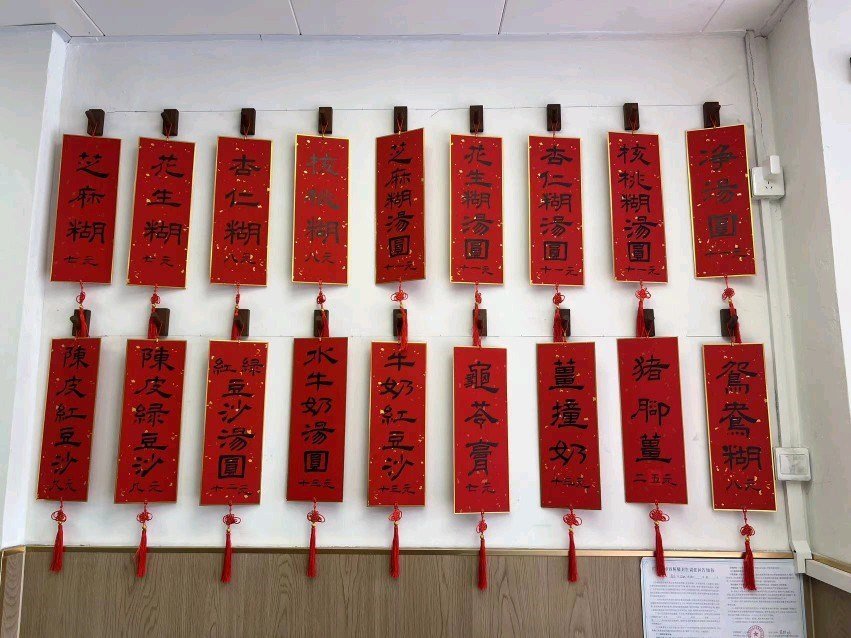 芝麻糊
七元
花生糊
七元
杏仁糊
八元
核桃糊
八元
芝麻糊湯圓
十一元
花生糊湯圓
十一元
杏仁糊湯圓
十一元
核桃糊湯圓
十一元
净湯圓
十一元
陳皮紅豆沙
九元
陳皮綠豆沙
九元
紅綠豆沙湯圓
十一元
水牛奶湯圓
十三元
牛奶紅豆沙
十三元
龜苓膏
七元
薑撞奶
豬腳薑
二五元
鴛鴦糊
八元